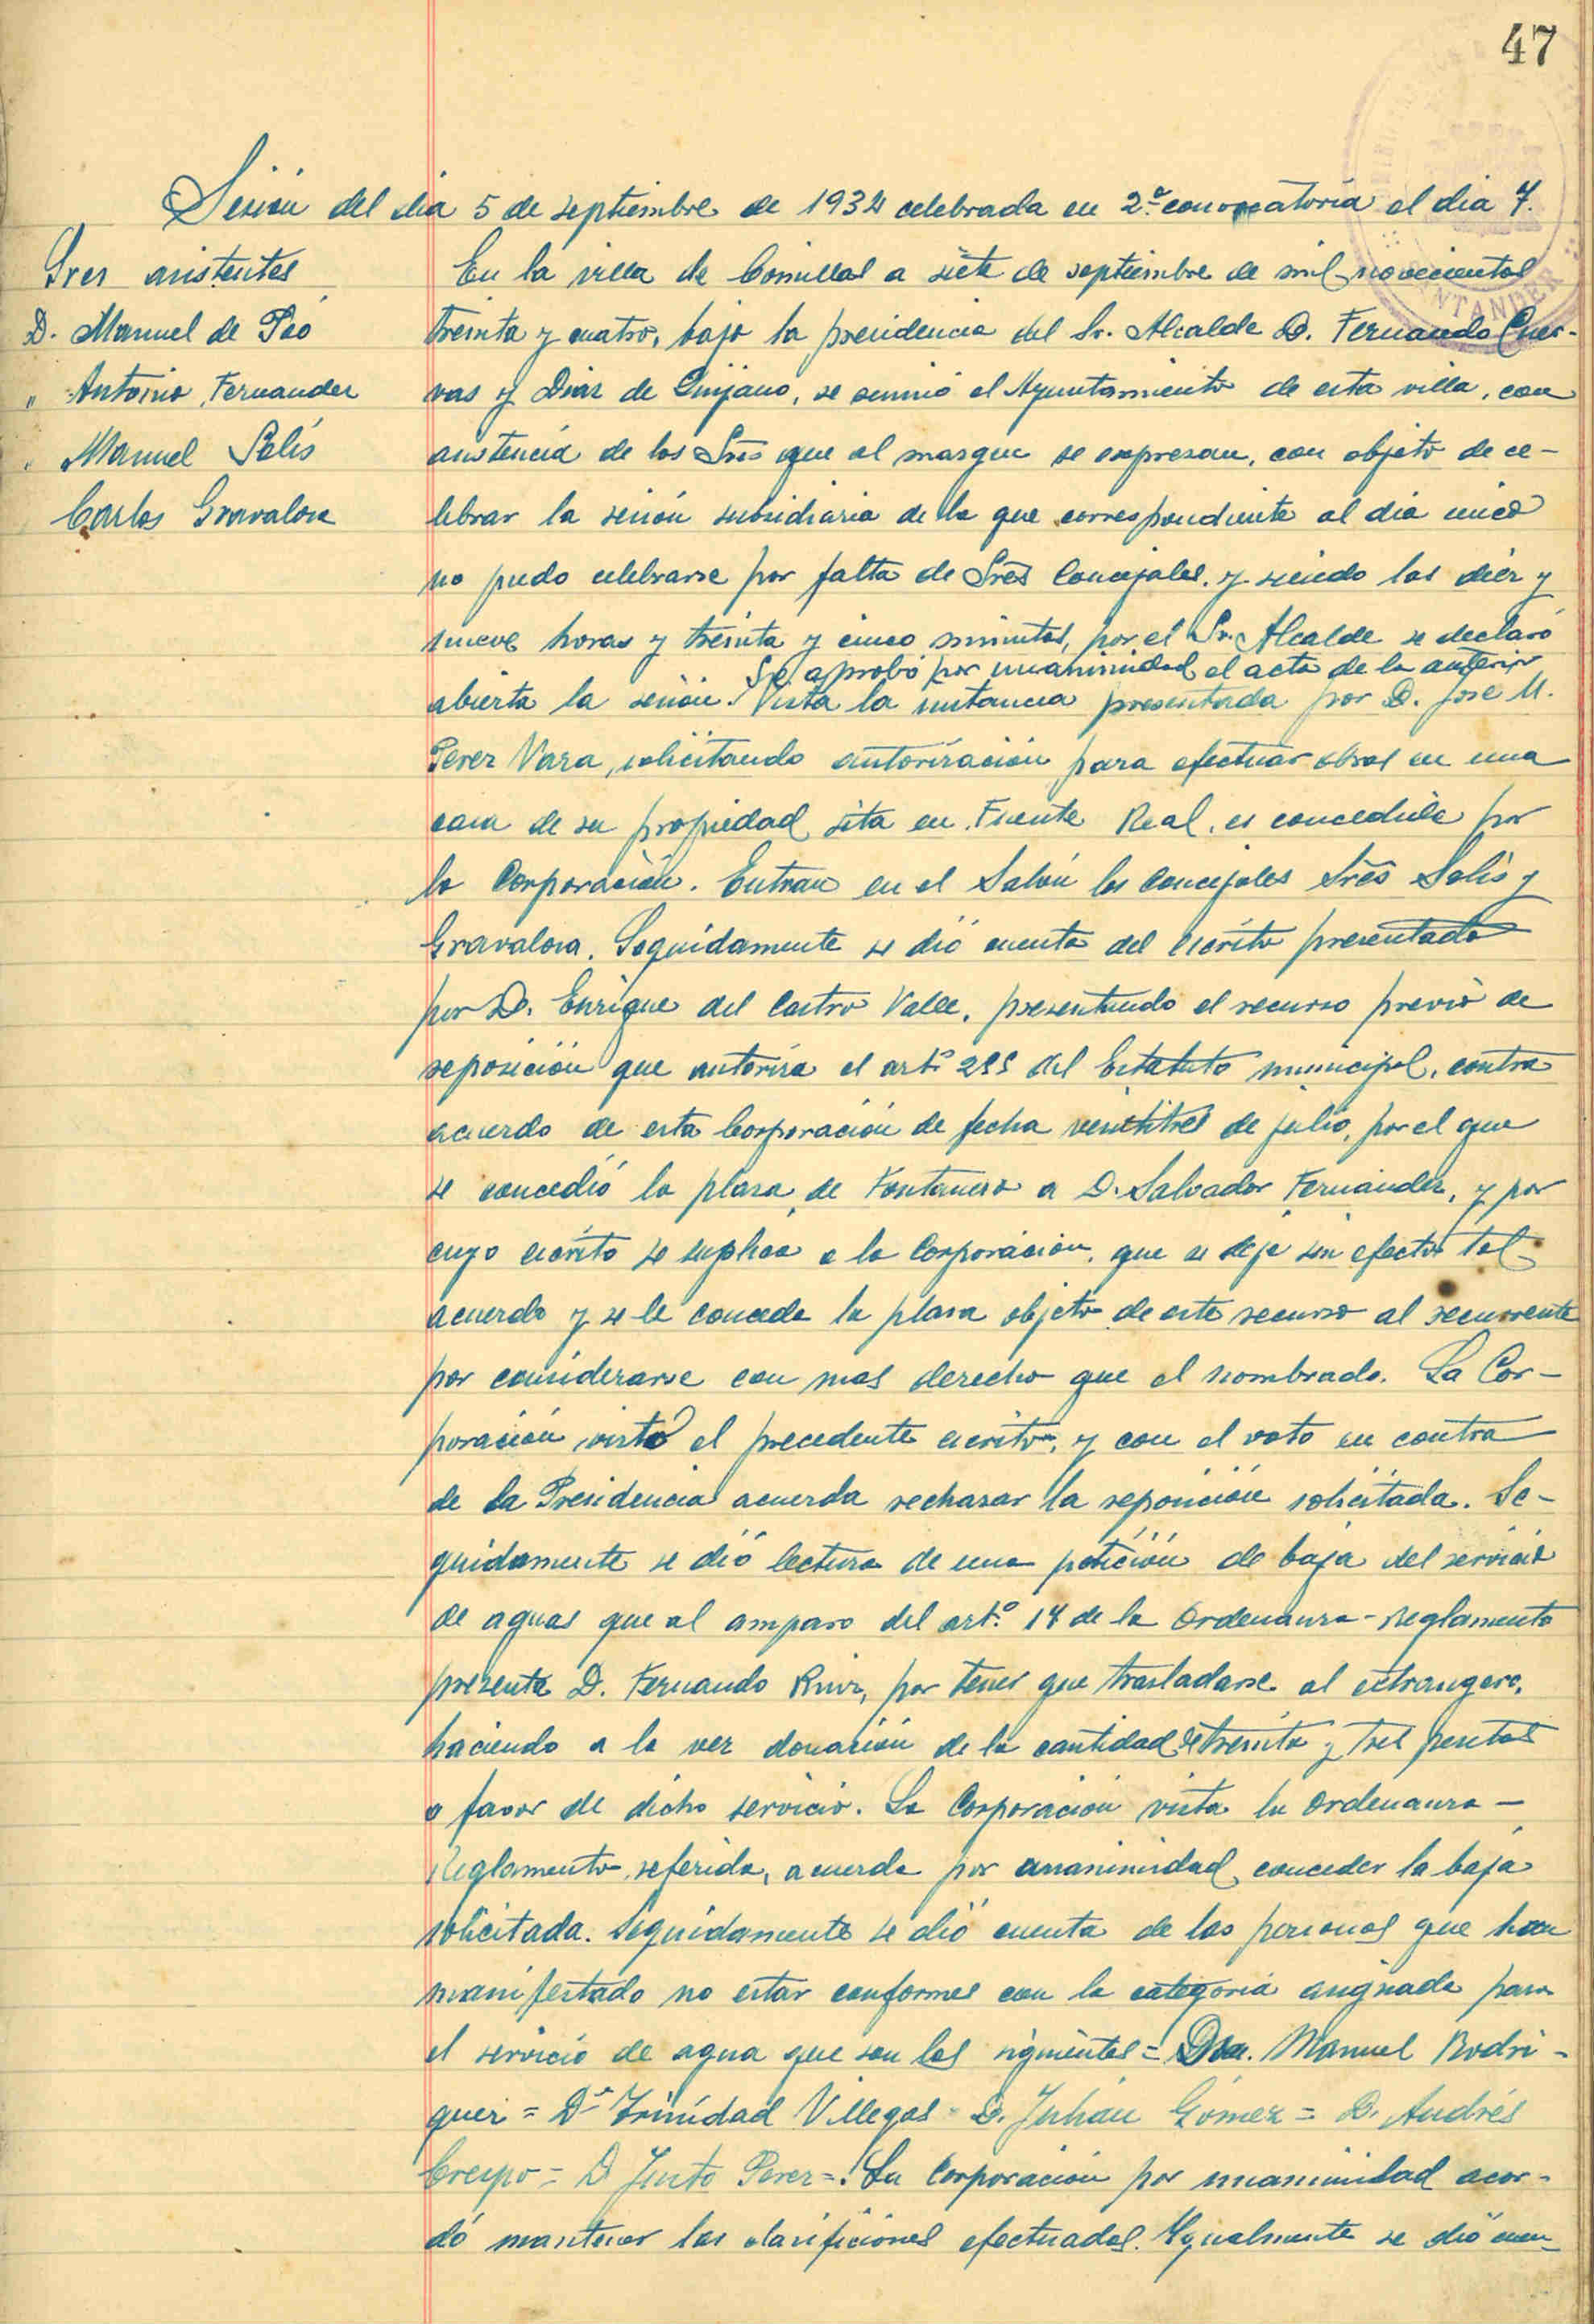 47
Sesión del dia 5 de septiembre de 1934 celebrada en 2ª convocatoria el dia 7.
Sres asistentes
D. Manuel de Póo
" Antonio Fernandez
" Manuel Solís
Carlos Gravalosa
En la villa de Comillas a siete de septiembre de mil novecientos
treinta y cuatro, bajo la presidencia del Sr. Alcalde D. Fernando Cuer-
vas y Diaz de Quijano, se reunió el Ayuntamiento de esta villa, con
asistencia de los Sres que al margen se expresan, con objeto de ce-
lebrar la sesión subsidiaria de la que correspondiente al dia cinco
no pudo celebrarse por falta de Sres Concejales. y siendo las diez y
nueve horas y treinta y cinco minutos, por el Sr. Alcalde se declaró
Se aprobó por unanimidad el acta de la anterior
abierta la sesión. Vista la instancia presentada por D. José M.
Perez Vara, solicitando autorización para efectuar obras en una
casa de su propiedad sita en Fuente Real, es concedida por
la Corporación. Entran en el Salón los Concejales Sres Solís y
Gravalosa. Seguidamente se dió cuenta del escrito presentado
por D. Enrique del Castro Valle, presentando el recurso previo de
reposición que autoriza el artº 255 del Estatuto municipal, contra
acuerdo de esta Corporación de fecha veintitres de julio, por el que
se concedió la plaza de Fontanero a D. Salvador Fernandez, y por
cuyo escrito se suplica a la Corporación, que se deje sin efecto tal
acuerdo y se le conceda la plaza objeto de este recurso al recurrente
por considerarse con mas derecho que el nombrado. La Cor-
poración visto el precedente escrito, y con el voto en contra
de la Presidencia acuerda rechazar la reposición solicitada. Se-
guidamente se dió lectura de una petición de baja del servicio
de aguas que al amparo del artº. 18 de la Ordenanza-Reglamento
presenta D. Fernando Ruiz, por tener que trasladarse al extrangero,
haciendo a la vez donación de la cantidad de treinta y tres pesetas
a favor de dicho servicio. La Corporación vista la Ordenanza -
Reglamento referida, acuerda por unanimidad conceder la baja
solicitada. Seguidamente se dió cuenta de las personas que han
manifestado no estar conformes con la categoría asignada para
el servicio de agua que son los siguientes = Don. Manuel Rodri-
guez = Dª Trinidad Villegas - D. Julián Gómez = D. Andrés
Crespo = D Justo Perez =. La Corporación por unanimidad acor-
dó mantener las clasificiones efectuadas. Igualmente se dió cuen-
SANTANDER